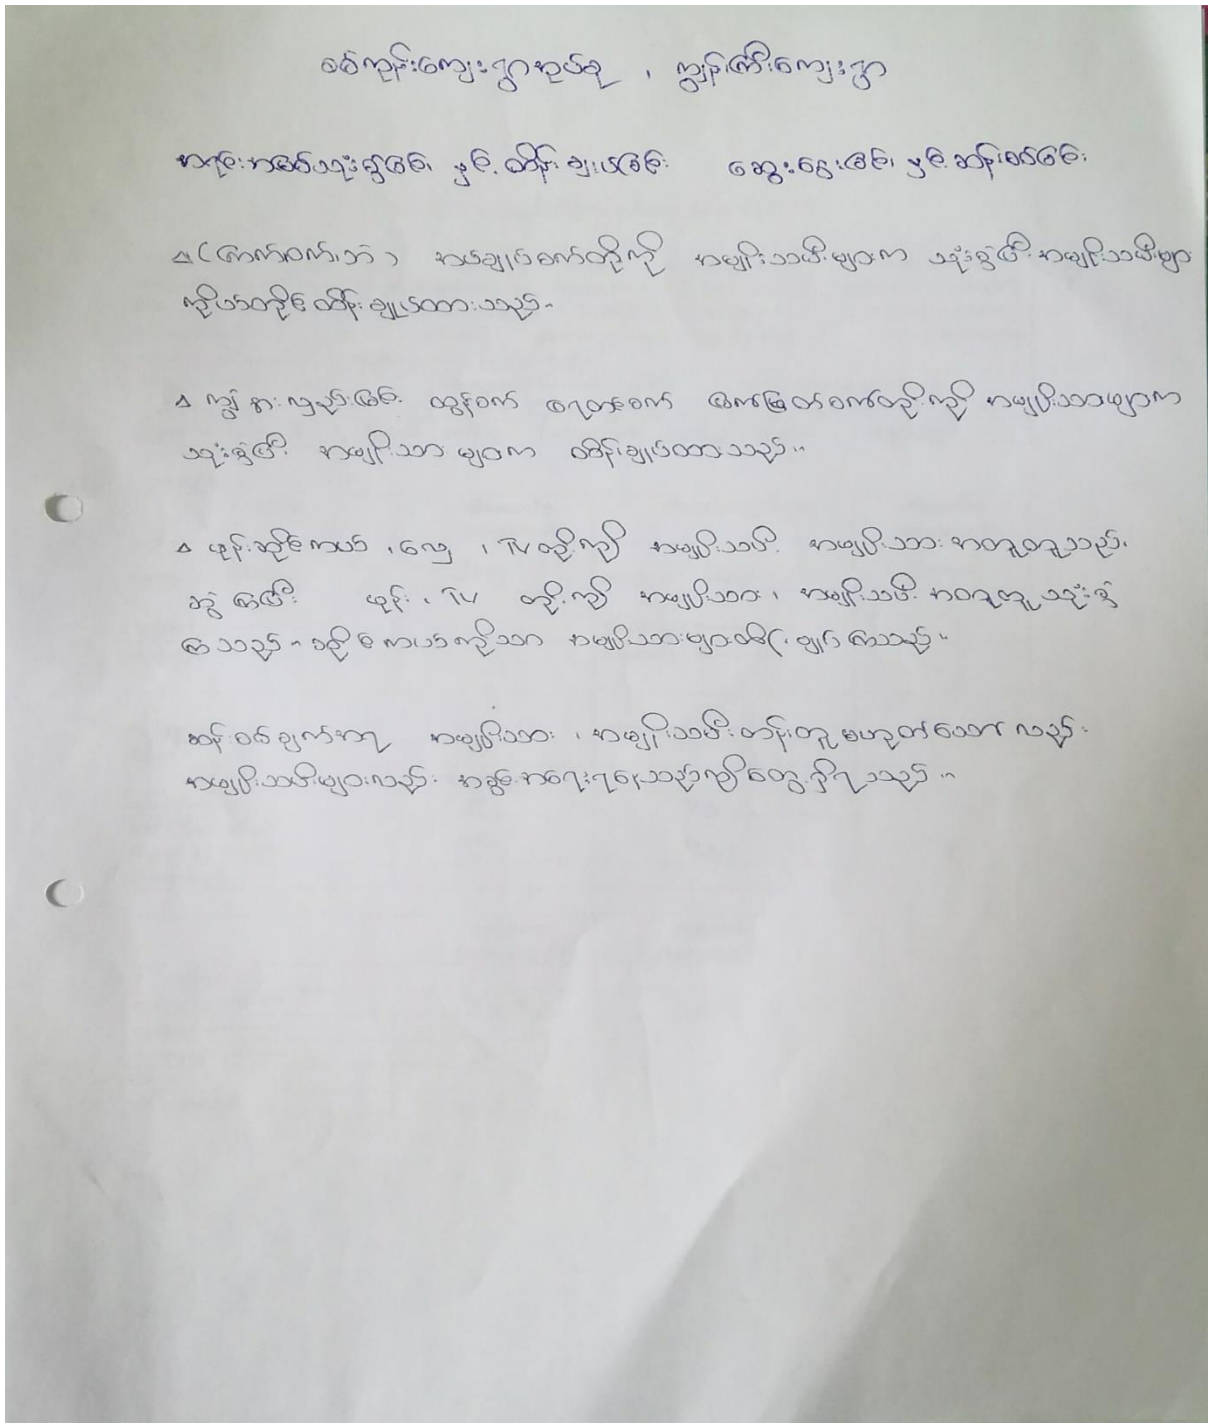 စစ်ကုန်းကျေးရွာအုပ်စု ၊ ကျွန်းကြီးကျေးရွာ
အရင်းအမြစ်သုံးစွဲခြင်း နှင့် ထိန်းချုပ်ခြင်း ဆွေးနွေးခြင်း နှင့် ဆန်းစစ်ခြင်း
△ ( ကြက်၊ ဝက်၊ ဘဲ ) အပ်ချုပ်စက်တို့ကို အမျိုးသမီးများက သုံးစွဲပြီး အမျိုးသမီးများ
ကိုယ်တိုင် ထိန်းချုပ်ထားသည်။
△ ကျွဲ နွား လှည်းခြင်း ထွန်စက် ရေတင်စက် မြက်ဖြတ်စက်တို့ကို အမျိုးသားများက
သုံးစွဲပြီး အမျိုးသားများက ထိန်းချုပ်ထားသည်။
△ ဖုန်း ဆိုင်ကယ် ၊ လှေ ၊ TV တို့ကို အမျိုးသမီး အမျိုးသား အတူတူသည်
ဆွဲကြပြီး ဖုန်း ၊ TV တို့ကို အမျိုးသား ၊ အမျိုးသမီး အတူတူ သုံးစွဲ
ကြသည်။ ဆိုင်ကယ်ကိုသာ အမျိုးသားများထိန်းချုပ်ကြသည်။
ဆန်းစစ်ချက်အရ အမျိုးသား ၊ အမျိုးသမီး တန်းတူမဟုတ်သော်လည်း
အမျိုးသမီးများလည်း အခွင့်အရေးရနေသည်ကိုတွေ့ရှိရသည်။